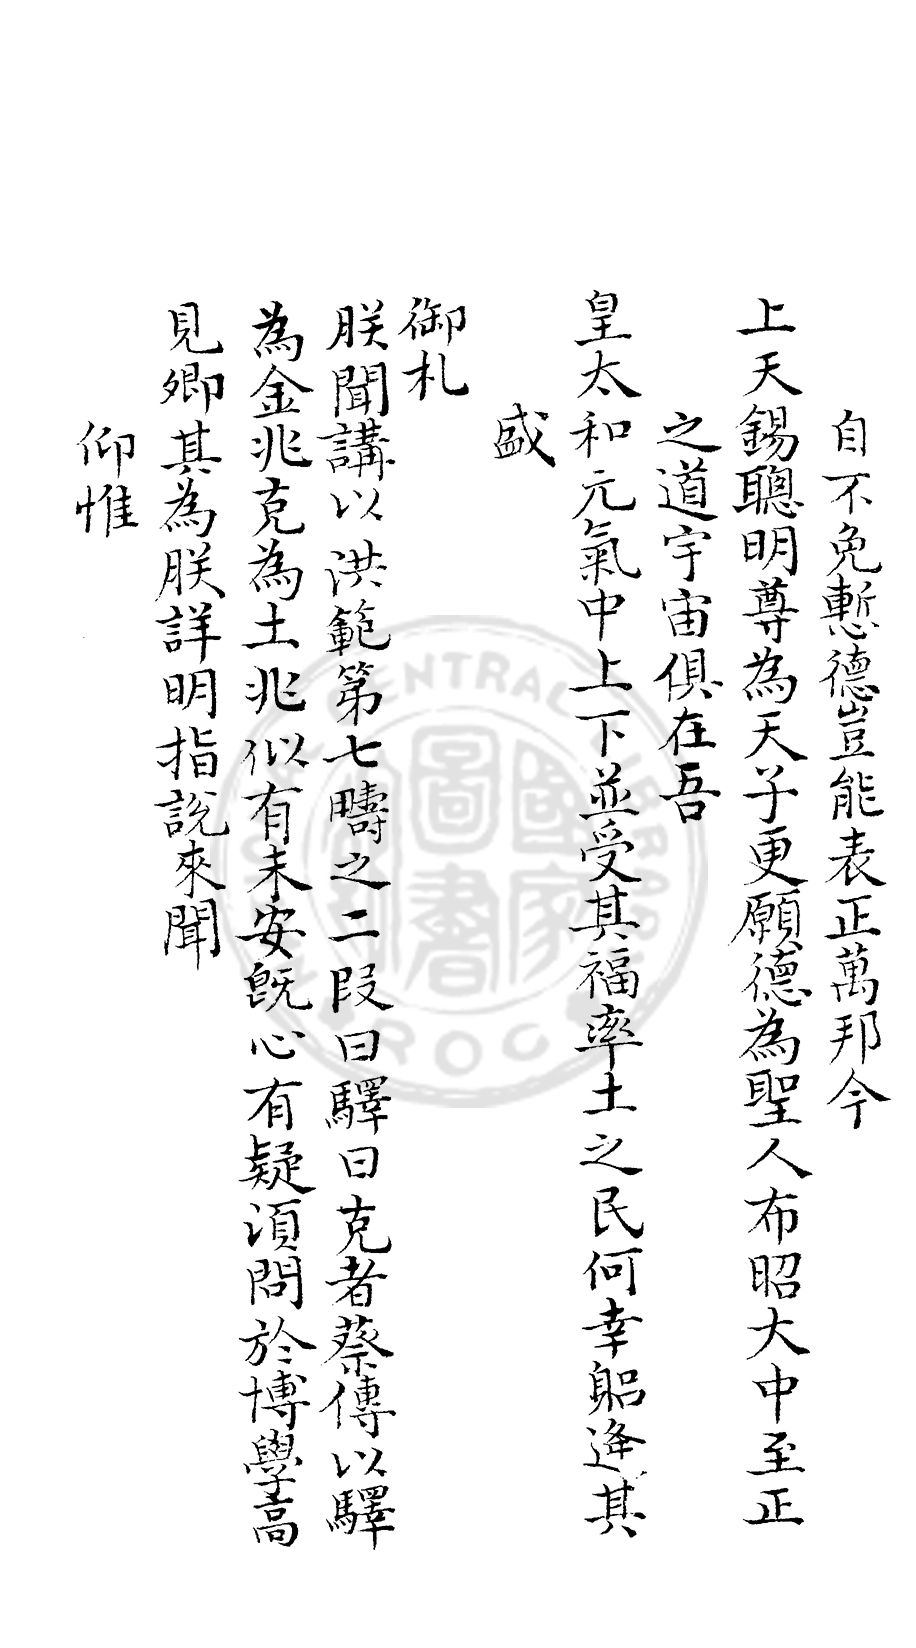 自不免慙德豈能表正萬邦今
上天錫聰明尊為天子更願德為聖人布昭大中至正
之道宇宙俱在吾
皇太和元氣中上下並受其福率土之民何幸躬逄其
盛
御札
朕聞講以洪範第七疇之二段曰驛曰克者蔡傳以驛
為金兆克為土兆似有未安旣心有疑湏問於博學高
見卿其為朕詳明指說來聞
仰惟